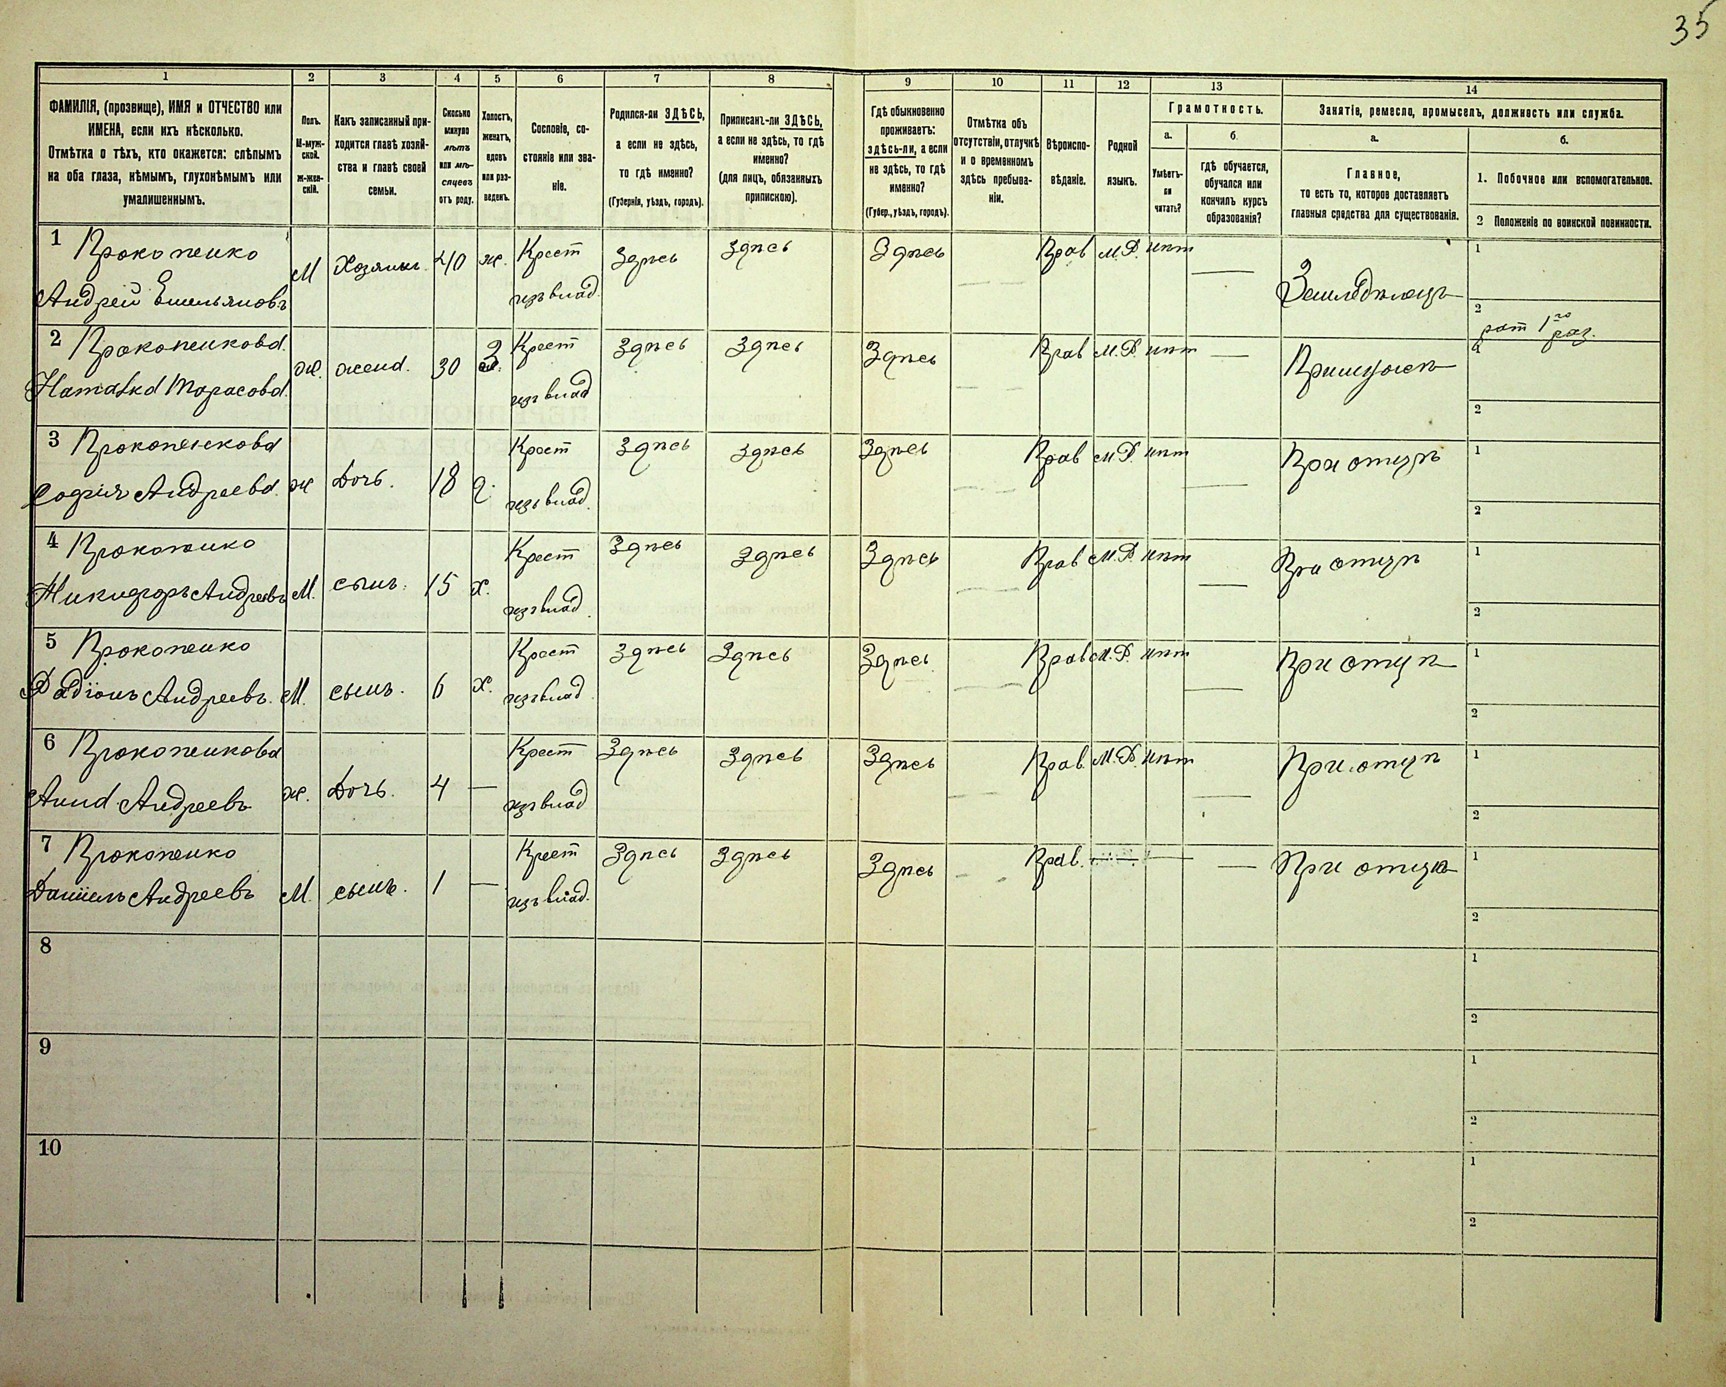 35
1 2 3 4 5 6 7 8 9 10 11 12 13 14
ФАМИЛІЯ, (прозвище), ИМЯ и ОТЧЕСТВО или
ИМЕНА, если ихъ нѣсколько.
Отмѣтка о тѣхъ, кто окажется: слѣпымъ
на оба глаза, нѣмымъ, глухонѣмымъ или
умалишеннымъ.
Полъ.
М-муж-
ской.
Ж-жен-
скій.
Какъ записанный при-
ходится главѣ хозяй-
ства и главѣ своей
семьи.
Сколько
минуло
лѣтъ
или мѣ-
сяцевъ
отъ роду.
Холостъ,
женатъ,
вдовъ
или раз-
веденъ.
Сословіе, со-
стояніе или зва-
ніе.
Родился-ли ЗДѢСЬ,
а если не здѣсь,
то гдѣ именно?
(Губернія, уѣздъ, городъ).
Приписанъ-ли ЗДѢСЬ,
а если не здѣсь, то гдѣ
именно?
(для лицъ, обязанныхъ
припискою).
Гдѣ обыкновенно
проживаетъ:
здѣсь-ли, а если
не здѣсь, то гдѣ
именно?
(Губер., уѣздъ, городъ).
Отмѣтка объ
отсутствіи, отлучкѣ
и о временномъ
здѣсь пребыва-
ніи.
Вѣроиспо-
вѣданіе.
Родной
языкъ.
Грамотность.
а.
Умѣетъ-
ли
читать?
б.
гдѣ обучается,
обучался или
кончилъ курсъ
образованія?
Занятіе, ремесло, промыселъ, должность или служба.
а.
Главное,
то есть то, которое доставляетъ
главныя средства для существованія.
б.
1. Побочное или вспомогательное.
2 Положеніе по воинской повинности.
1 Прокопенко М Хозяинъ 40 ж. Крест Здѣсь Здѣсь Здѣсь Прав М.Р. нѣт — 1
Андрей Емельяновъ изъ влад. Земледѣлецъ 2 рат 1го раз.
2 Прокопенкова ж. жена. 30 З. Крест Здѣсь Здѣсь Здѣсь Прав М.Р. нѣт —
Наталка Тарасова изъ влад 2
3 Прокопенкова ж Дочь. 18 Крест Здѣсь Здѣсь Здѣсь Прав М.Р. нѣт — При отцѣ 1
Софія Андреева изъ влад. 2
4 Прокопенко М. сынъ. 15 х. Крест Здѣсь Здѣсь Здѣсь Прав М.Р. нѣт — При отцѣ 1
Никифоръ Андреевъ изъ влад. 2
5 Прокопенко М. сынъ. 6 х. Крест Здѣсь Здѣсь Здѣсь Прав М.Р. нѣт — При отцѣ 1
Радіонъ Андреевъ. изъ влад 2
6 Прокопенкова ж. Дочь. 4 — Крест Здѣсь Здѣсь Здѣсь Прав. М.Р. нѣт — При отцѣ 1
Анна Андреевъ изъ влад 2
7 Прокопенко М. сынъ. 1 — Крест Здѣсь Здѣсь Здѣсь Прав. — — — При отцѣ 1
Даніилъ Андреевъ изъ влад. 2
8 1
2
9 1
2
10 1
2